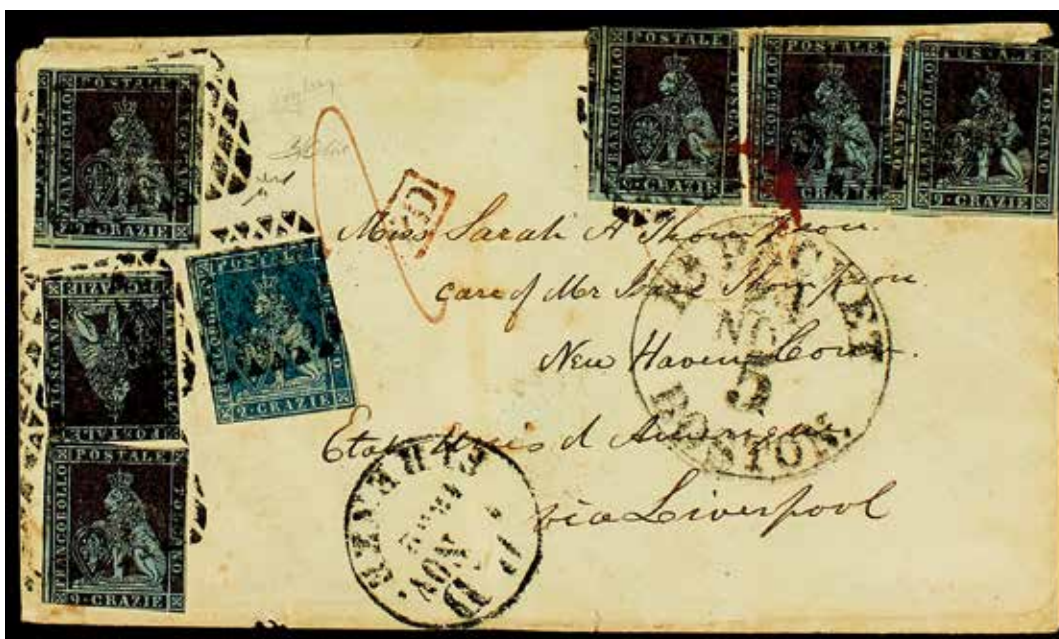 FRANCOBOLLO POSTALE TOSCANO
9·CRAZIE
FRANCOBOLLO POSTALE TOSCANO
9·CRAZIE
FRANCOBOLLO POSTALE TOSCANO
9·CRAZIE
FRANCOBOLLO POSTALE TOSCANO
9·CRAZIE
FRANCOBOLLO POSTALE TOSCANO
CRAZIE
FRANCOBOLLO POSTALE TOSCANO
9·CRAZIE
POSTALE TOSCANO
2·CRAZIE
PD
Miss Sarah A Thompson.
care of Mr Thompson
New Haven Conn.
Etats Unis d
via Liverpool
BR PACKET
NOV
5
BOSTON.
FIRENZE
NOV